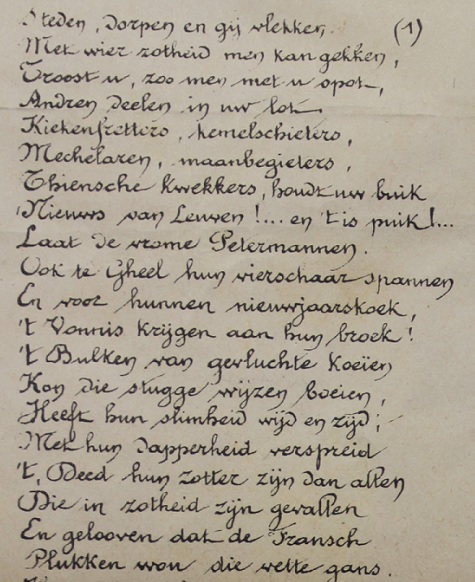 Steden, dorpen en gij vlekken (1)
Met wier zotheid men kan gekken,
Troost u, zoo men met u spot,
Andren deelen in uw lot
Kiekenfretters, kemelschieters,
Mechelaren, maanbegieters,
Thiensche kwekkers, houdt uw buik
Nieuws van Leuven!... en 't is puik!...
Laat de vrome Petermannen.
Ook te Gheel hun vierschaar spannen
En voor hunnen nieuwjaarskoek,
't Vonnis krijgen aan hun broek!
't Bulken van gevluchte koeien
Kon die stugge wijzen boeien,
Heeft hun slimheid wijd en zijd,
Met hun dapperheid verspreid
't, Deed hun zotter zijn dan allen
Die in zotheid zijn gevallen
En gelooven dat de Fransch
Plukken wou die vette gans.